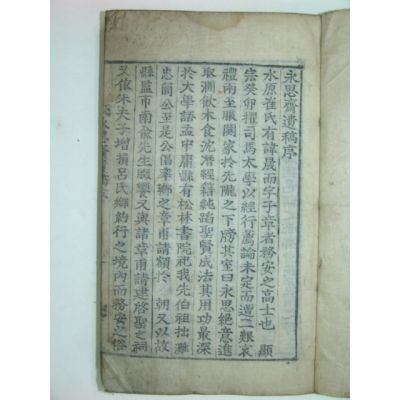 永思齋遺稿序
水原崔氏有諱晟而字子章者務安之高士也 顯
宗癸卯擢司馬太學以經行薦論未定而遭二艱哀
禮兩至服闋家於先壠之下牓其室曰永思絕意進
取澗飮木食沈潛經籍純蹈聖賢成法其用功最深
於大學語孟中庸縣有松林書院祀我先伯祖拙灘
忠簡公至是公倡率鄕之章甫請額於 朝又以故
縣監市南兪先生服饗又與諸章甫請建啓聖之祠
又倣朱夫子增損呂氏鄕約行之境內而務安之俗